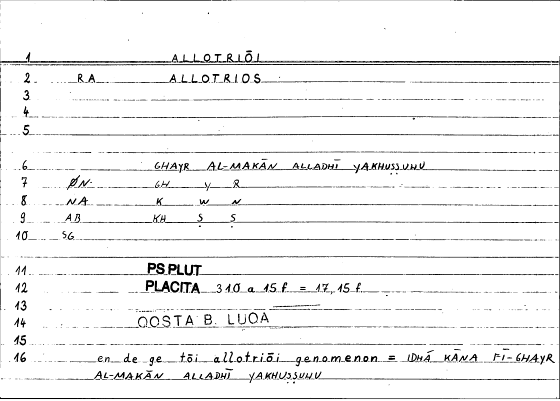 1 ALLOTRIŌI
2 RA ALLOTRIOS
3
4
5
6 GHAYR AL-MAKĀN ALLADHĪ YAKHUṢṢUHU
7 ØN GH Y R
8 NA K W N
9 AB KH Ṣ Ṣ
10 SG
11 PS PLUT
12 PLACITA 310 a 15 f = 17,15 f.
13
14 QOSTA B. LUQA
15
16 en de ge tōi allotriōi genomenon = IDHĀ KĀNA FĪ-GHAYR
AL-MAKĀN ALLADHĪ YAKHUṢṢUHU